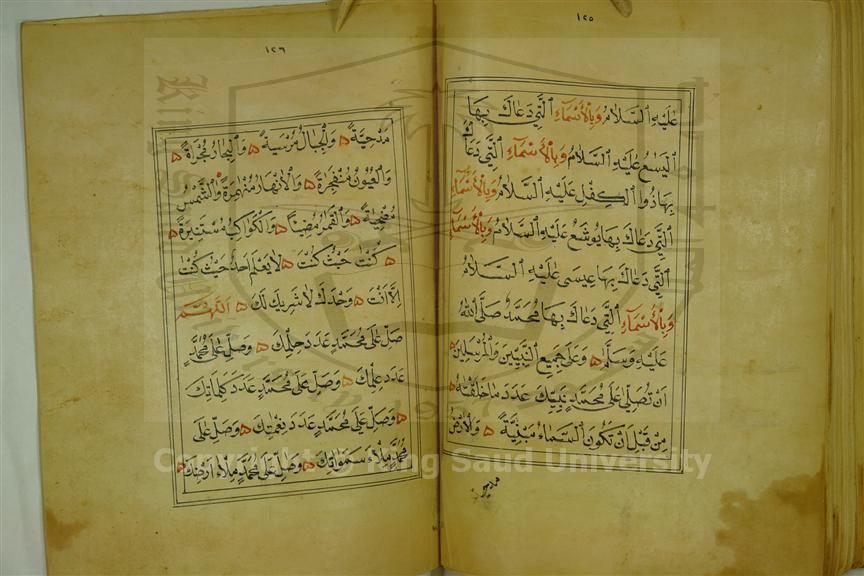 ١٢٥
عَلَيْهِ السَّلَامُ وَبِالْأَسْمَاءِ الَّتِي دَعَاكَ بِهَا
الْيَسَعُ عَلَيْهِ السَّلَامُ وَبِالْأَسْمَاءِ الَّتِي دَعَاكَ
بِهَا ذُوالْكِفْلِ عَلَيْهِ السَّلَامُ وَبِالْأَسْمَاءِ
الَّتِي دَعَاكَ بِهَا يُوشَعُ عَلَيْهِ السَّلَامُ وَبِالْأَسْمَاءِ
الَّتِي دَعَاكَ بِهَا عِيسَى عَلَيْهِ السَّلَامُ
وَبِالْأَسْمَاءِ الَّتِي دَعَاكَ بِهَا مُحَمَّدٌ صَلَّى اللهُ
عَلَيْهِ وَسَلَّمَ وَعَلَى جَمِيعِ النَّبِيِّينَ وَالْمُرْسَلِينَ
أَنْ تُصَلِّيَ عَلَى مُحَمَّدٍ نَبِيِّكَ عَدَدَ مَا خَلَقْتَهُ
مِنْ قَبْلِ أَنْ تَكُونَ السَّمَاءُ مَبْنِيَّةً وَالْأَرْضُ
١٢٦
مَدْحِيَّةً وَالْجِبَالُ مُرْسِيَةً وَالْبِحَارُ مُجْرَاةً
وَالْعُيُونُ مُنْفَجِرَةً وَالْأَنْهَارُ مُنْهَمِرَةً وَالشَّمْسُ
مُضْحِيَةً وَالْقَمَرُ مُضِيئًا وَالْكَوَاكِبُ مُسْتَنِيرَةً
كُنْتَ حَيْثُ كُنْتَ لَا يَعْلَمُ أَحَدٌ حَيْثُ كُنْتَ
إِلَّا أَنْتَ وَحْدَكَ لَا شَرِيكَ لَكَ اللَّهُمَّ
صَلِّ عَلَى مُحَمَّدٍ عَدَدَ حِلْمِكَ وَصَلِّ عَلَى مُحَمَّدٍ
عَدَدَ عِلْمِكَ وَصَلِّ عَلَى مُحَمَّدٍ عَدَدَ كَلِمَاتِكَ
وَصَلِّ عَلَى مُحَمَّدٍ عَدَدَ نِعْمَتِكَ وَصَلِّ عَلَى
مُحَمَّدٍ مِلْأَ سَمَوَاتِكَ وَصَلِّ عَلَى مُحَمَّدٍ مِلْأَ أَرْضِكَ
Copyright © King Saud University